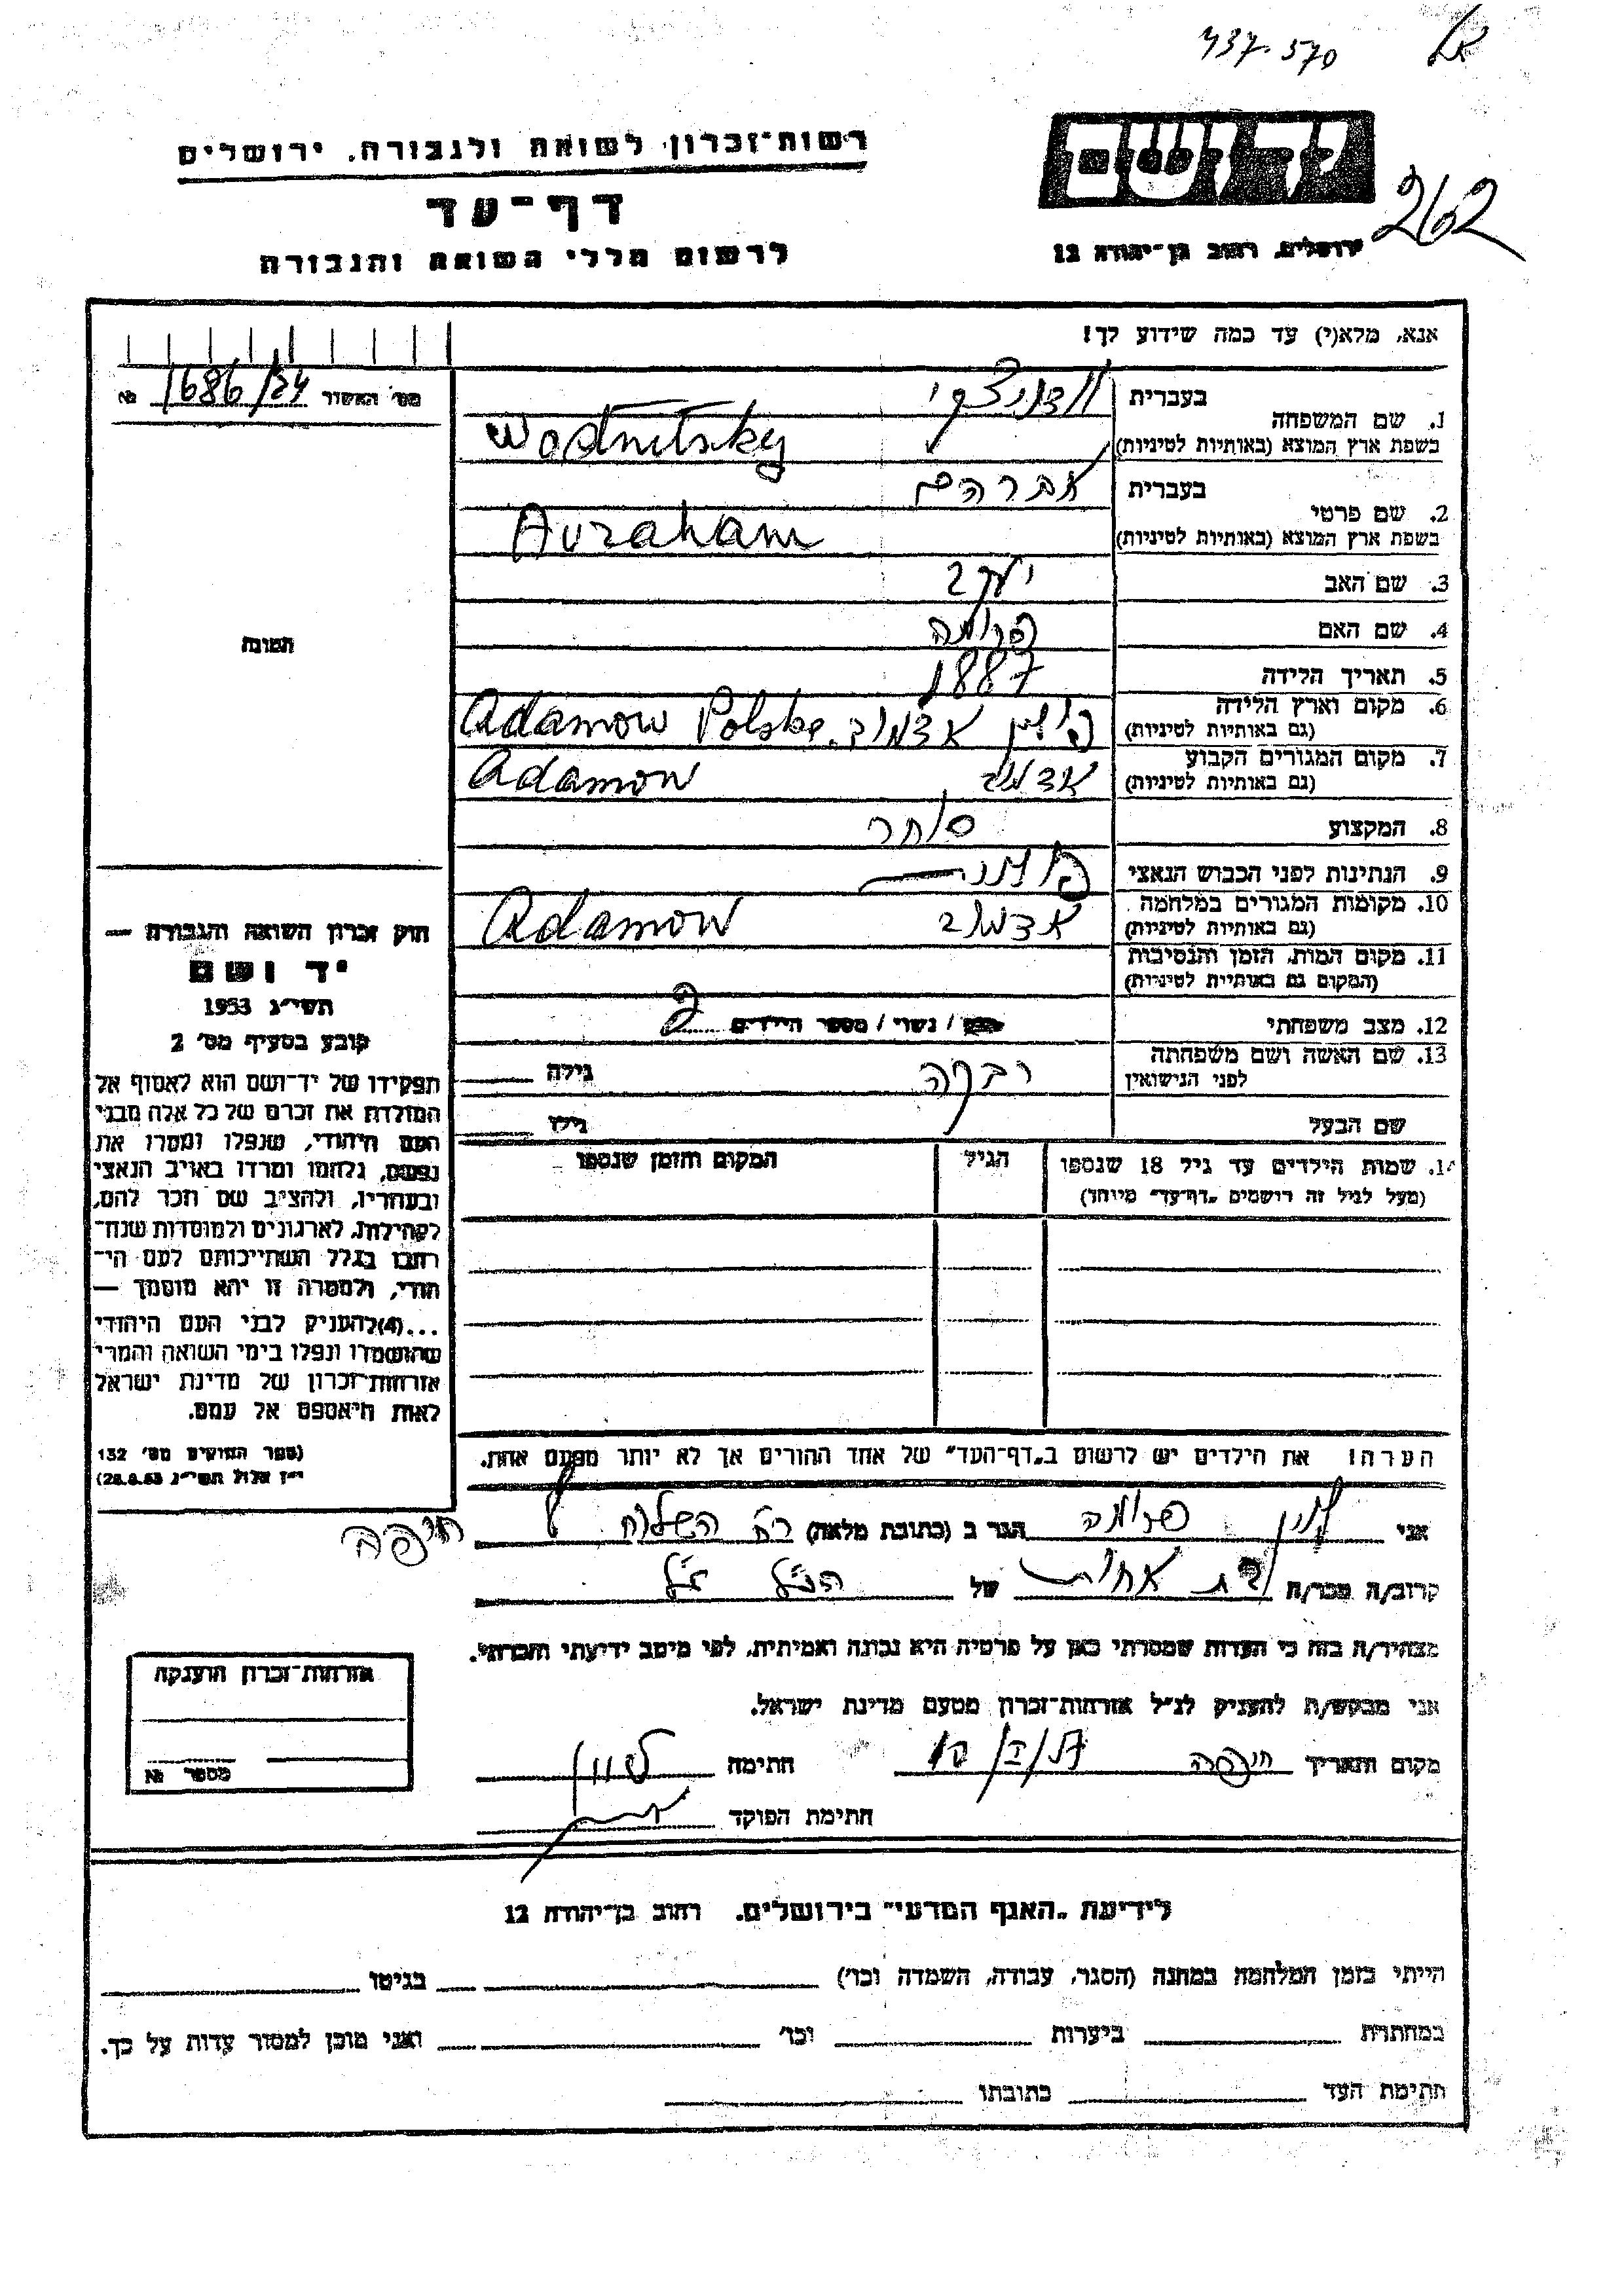 437.570
262
יד ושם
ירושלים, רחוב בן־יהודה 12
רשות־זכרון לשואה ולגבורה, ירושלים
דף־עד
לרשום חללי השואה והגבורה
אנא, מלא(י) עד כמה שידוע לך!
מס' האשור 1686/24 №
1. שם המשפחה
בעברית וודניצקי
בשפת ארץ המוצא (באותיות לטיניות) Wodnitsky
2. שם פרטי
בעברית אברהם
בשפת ארץ המוצא (באותיות לטיניות) Avraham
3. שם האב יעקב
4. שם האם פרומה
5. תאריך הלידה 1887
6. מקום וארץ הלידה
(גם באותיות לטיניות) פולין אדמוב. Adamow Polska
7. מקום המגורים הקבוע
(גם באותיות לטיניות) אדמוב Adamow
8. המקצוע סוחר
9. הנתינות לפני הכבוש הנאצי פולני
10. מקומות המגורים במלחמה
(גם באותיות לטיניות) אדמוב Adamow
11. מקום המות, הזמן והנסיבות
(המקום גם באותיות לטיניות)
12. מצב משפחתי / נשוי / מספר הילדים
13. שם האשה ושם משפחתה
לפני הנישואין רבקה גילה
שם הבעל גילו
14. שמות הילדים עד גיל 18 שנספו
(מעל לגיל זה רושמים "דף־עד" מיוחד)
הגיל
המקום והזמן שנספו
הערה! את הילדים יש לרשום ב"דף־העד" של אחד ההורים אך לא יותר מפעם אחת.
התמונה
חוק זכרון השואה והגבורה —
יד ושם
תשי"ג 1953
קובע בסעיף מס' 2
תפקידו של יד־ושם הוא לאסוף אל
המולדת את זכרם של כל אלה מבני
העם היהודי, שנפלו ומסרו את
נפשם, נלחמו ומרדו באויב הנאצי
ובעוזריו, ולהציב שם וזכר להם,
לקהילות, לארגונים ולמוסדות שנח־
רבו בגלל השתייכותם לעם הי־
הודי, ולמטרה זו יהא מוסמך —
...(4)להעניק לבני העם היהודי
שהושמדו ונפלו בימי השואה והמרי
אזרחות־זכרון של מדינת ישראל
לאות היאספם אל עמם.
(ספר החוקים מס' 132
י"ז אלול תשי"ג 28.8.53)
אני לוין פרומה הגר ב (כתובת מלאה) רח השלוח חיפה
קרוב/ה מכר/ה בת אחות של הנ"ל ז"ל
מצהיר/ה בזה כי העדות שמסרתי כאן על פרטיה היא נכונה ואמיתית, לפי מיטב ידיעתי והכרתי.
אני מבקש/ת להעניק לנ"ל אזרחות־זכרון מטעם מדינת ישראל.
מקום ותאריך חיפה חתימה
חתימת הפוקד
אזרחות־זכרון הוענקה
מספר №
לידיעת "האגף המדעי" בירושלים. רחוב בן־יהודה 12
הייתי בזמן המלחמה במחנה (הסגר, עבודה, השמדה וכו') בגיטו
במחתרת ביערות וכו' ואני מוכן למסור עדות על כך.
חתימת העד כתובתו